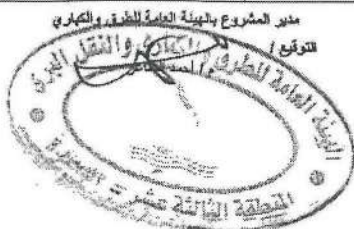 مدير المشروع بالهيئة العامة للطرق والكباري
التوقيع /
الهيئة العامة للطرق والكباري والنقل البري
المنطقة الثالثة عشر -